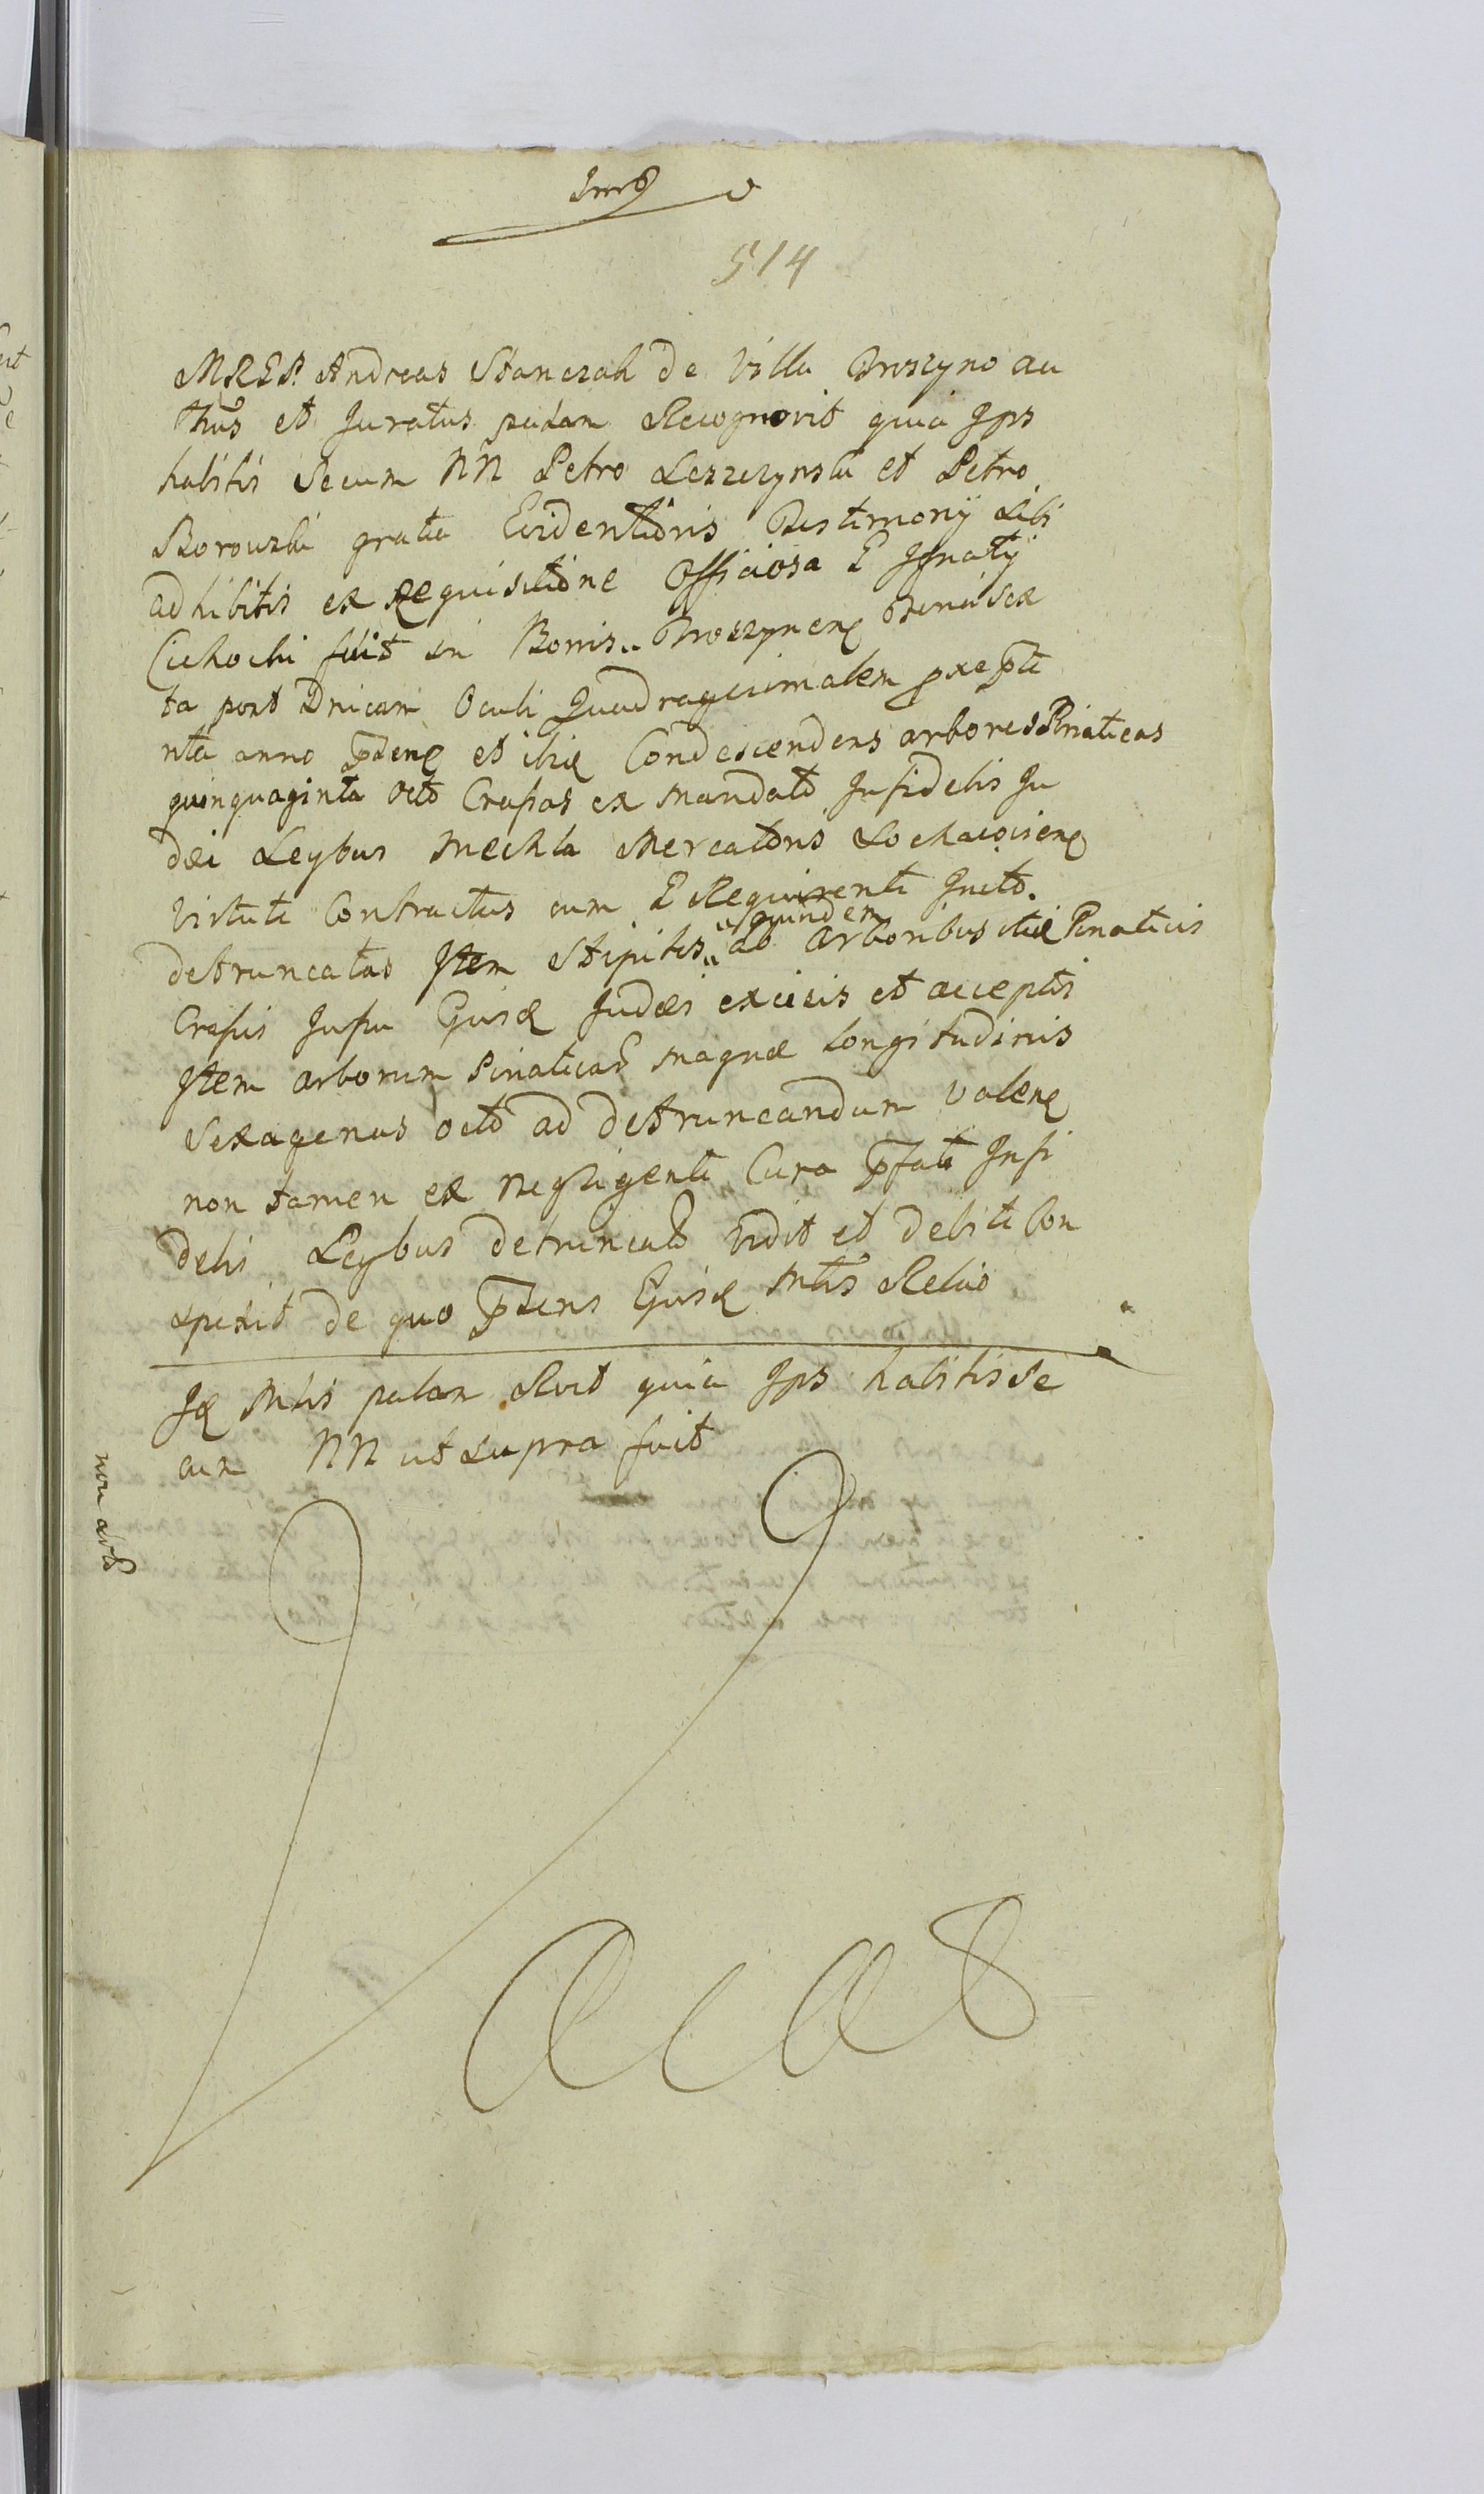 514
MREP. Andreas Stanczak de Villa Droszyno au
thūs et Juratus palam Recognovit quia Ips
habitis Secum NN Petro Leszczynski et Petro
Borowski gratia Evidentioris Testimonÿ Sibi
adhibitis ex Requisitione Officiosa E Ignatÿ
Cichocki fuit in Bonis Droszynen Feria sex
ta post Dnicam Oculi Quadragesimalem
nti anno et ibid Condescendens arbores Pinaticas
quinquaginta octo Crassas ex mandato Infidelis Ju
dei Leybus Mechla Mercatoris Lochaiocien
virtute Contractus cum E Requirente Inito
detruncatas Item Stipites quindem ab arboribus itid Pinaticis
Crassis Jussu Ejusd Judæi excisis et acceptis
Item arborum Pinaticar magnæ Longitudinis
Sexagenas octo ad detruncandum valen
non tamen ex negligenti Cura pfati Infi
delis Leybus detruncat vidit et debite Con
spexit de quo pdens Ejusd Mtis Relao
Id Mtis palam Rvit quia Ips habitis Se
cum NN ut supra fuit